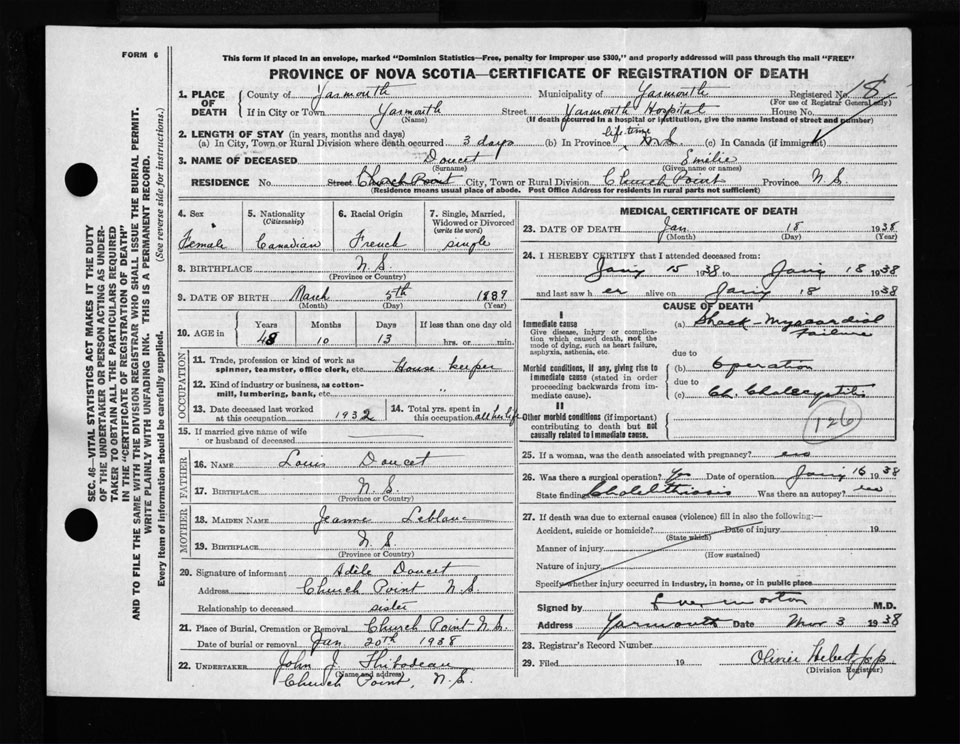 FORM 6
This form if placed in an envelope, marked "Dominion Statistics—Free, penalty for improper use $300," and properly addressed will pass through the mail "FREE"
PROVINCE OF NOVA SCOTIA—CERTIFICATE OF REGISTRATION OF DEATH
1. PLACE OF DEATH
County of Yarmouth Municipality of Yarmouth Registered No. 18
(For use of Registrar General only)
If in City or Town Yarmouth Street Yarmouth Hospital House No.
(Name) (If death occurred in a hospital or institution, give the name instead of street and number)
2. LENGTH OF STAY (in years, months and days)
(a) In City, Town or Rural Division where death occurred 3 days (b) In Province life time N.S. (c) In Canada (if immigrant)
3. NAME OF DECEASED Doucet Emélie
(Surname) (Given name or names)
RESIDENCE No. Street Church Point City, Town or Rural Division Church Point Province N.S.
(Residence means usual place of abode. Post Office Address for residents in rural parts not sufficient)
4. Sex Female
5. Nationality (Citizenship) Canadian
6. Racial Origin French
7. Single, Married, Widowed or Divorced (write the word) single
8. BIRTHPLACE N.S.
(Province or Country)
9. DATE OF BIRTH March 5th 1889
(Month) (Day) (Year)
10. AGE in Years 48 Months 10 Days 13 If less than one day old hrs. or min.
OCCUPATION
11. Trade, profession or kind of work as spinner, teamster, office clerk, etc. House keeper
12. Kind of industry or business, as cotton-mill, lumbering, bank, etc. "
13. Date deceased last worked at this occupation 1932
14. Total yrs. spent in this occupation all her life
15. If married give name of wife or husband of deceased
FATHER
16. NAME Louis Doucet
17. BIRTHPLACE N.S.
(Province or Country)
MOTHER
18. MAIDEN NAME Jeanne Leblanc
19. BIRTHPLACE N.S.
(Province or Country)
20. Signature of informant Adèle Doucet
Address Church Point N.S.
Relationship to deceased sister
21. Place of Burial, Cremation or Removal Church Point N.S.
Date of burial or removal Jan. 20th 1938
22. UNDERTAKER John J. Thibodeau
(Name and address)
Church Point, N.S.
MEDICAL CERTIFICATE OF DEATH
23. DATE OF DEATH Jan. 18 1938
(Month) (Day) (Year)
24. I HEREBY CERTIFY that I attended deceased from:
Jany 15 1938 to Jany 18 1938
and last saw her alive on Jany 18 1938
CAUSE OF DEATH
I
Immediate cause
Give disease, injury or complication which caused death, not the mode of dying, such as heart failure, asphyxia, asthenia, etc.
(a) Shock - Myocardial failure
due to
Morbid conditions, if any, giving rise to immediate cause (stated in order proceeding backwards from immediate cause).
(b) Operation
due to
(c) Ch. Cholecystitis
II
Other morbid conditions (if important) contributing to death but not causally related to immediate cause.
126
25. If a woman, was the death associated with pregnancy? no
26. Was there surgical operation? Yes Date of operation Jany 16 1938
State finding Cholelithiasis Was there an autopsy? no
27. If death was due to external causes (violence) fill in also the following:—
Accident, suicide or homicide? Date of injury 19
(State which)
Manner of injury
(How sustained)
Nature of injury
Specify whether injury occurred in industry, in home, or in public place
Signed by M.D.
Address Yarmouth Date Mar 3 1938
28. Registrar's Record Number
29. Filed 19 Olivier Hebert
(Division Registrar)
SEC. 46—VITAL STATISTICS ACT MAKES IT THE DUTY
OF THE UNDERTAKER OR PERSON ACTING AS UNDER-
TAKER TO OBTAIN ALL THE PARTICULARS REQUIRED
IN THE "CERTIFICATE OF REGISTRATION OF DEATH"
AND TO FILE THE SAME WITH THE DIVISION REGISTRAR WHO SHALL ISSUE THE BURIAL PERMIT.
WRITE PLAINLY WITH UNFADING INK. THIS IS A PERMANENT RECORD.
Every item of information should be carefully supplied. (See reverse side for instructions.)